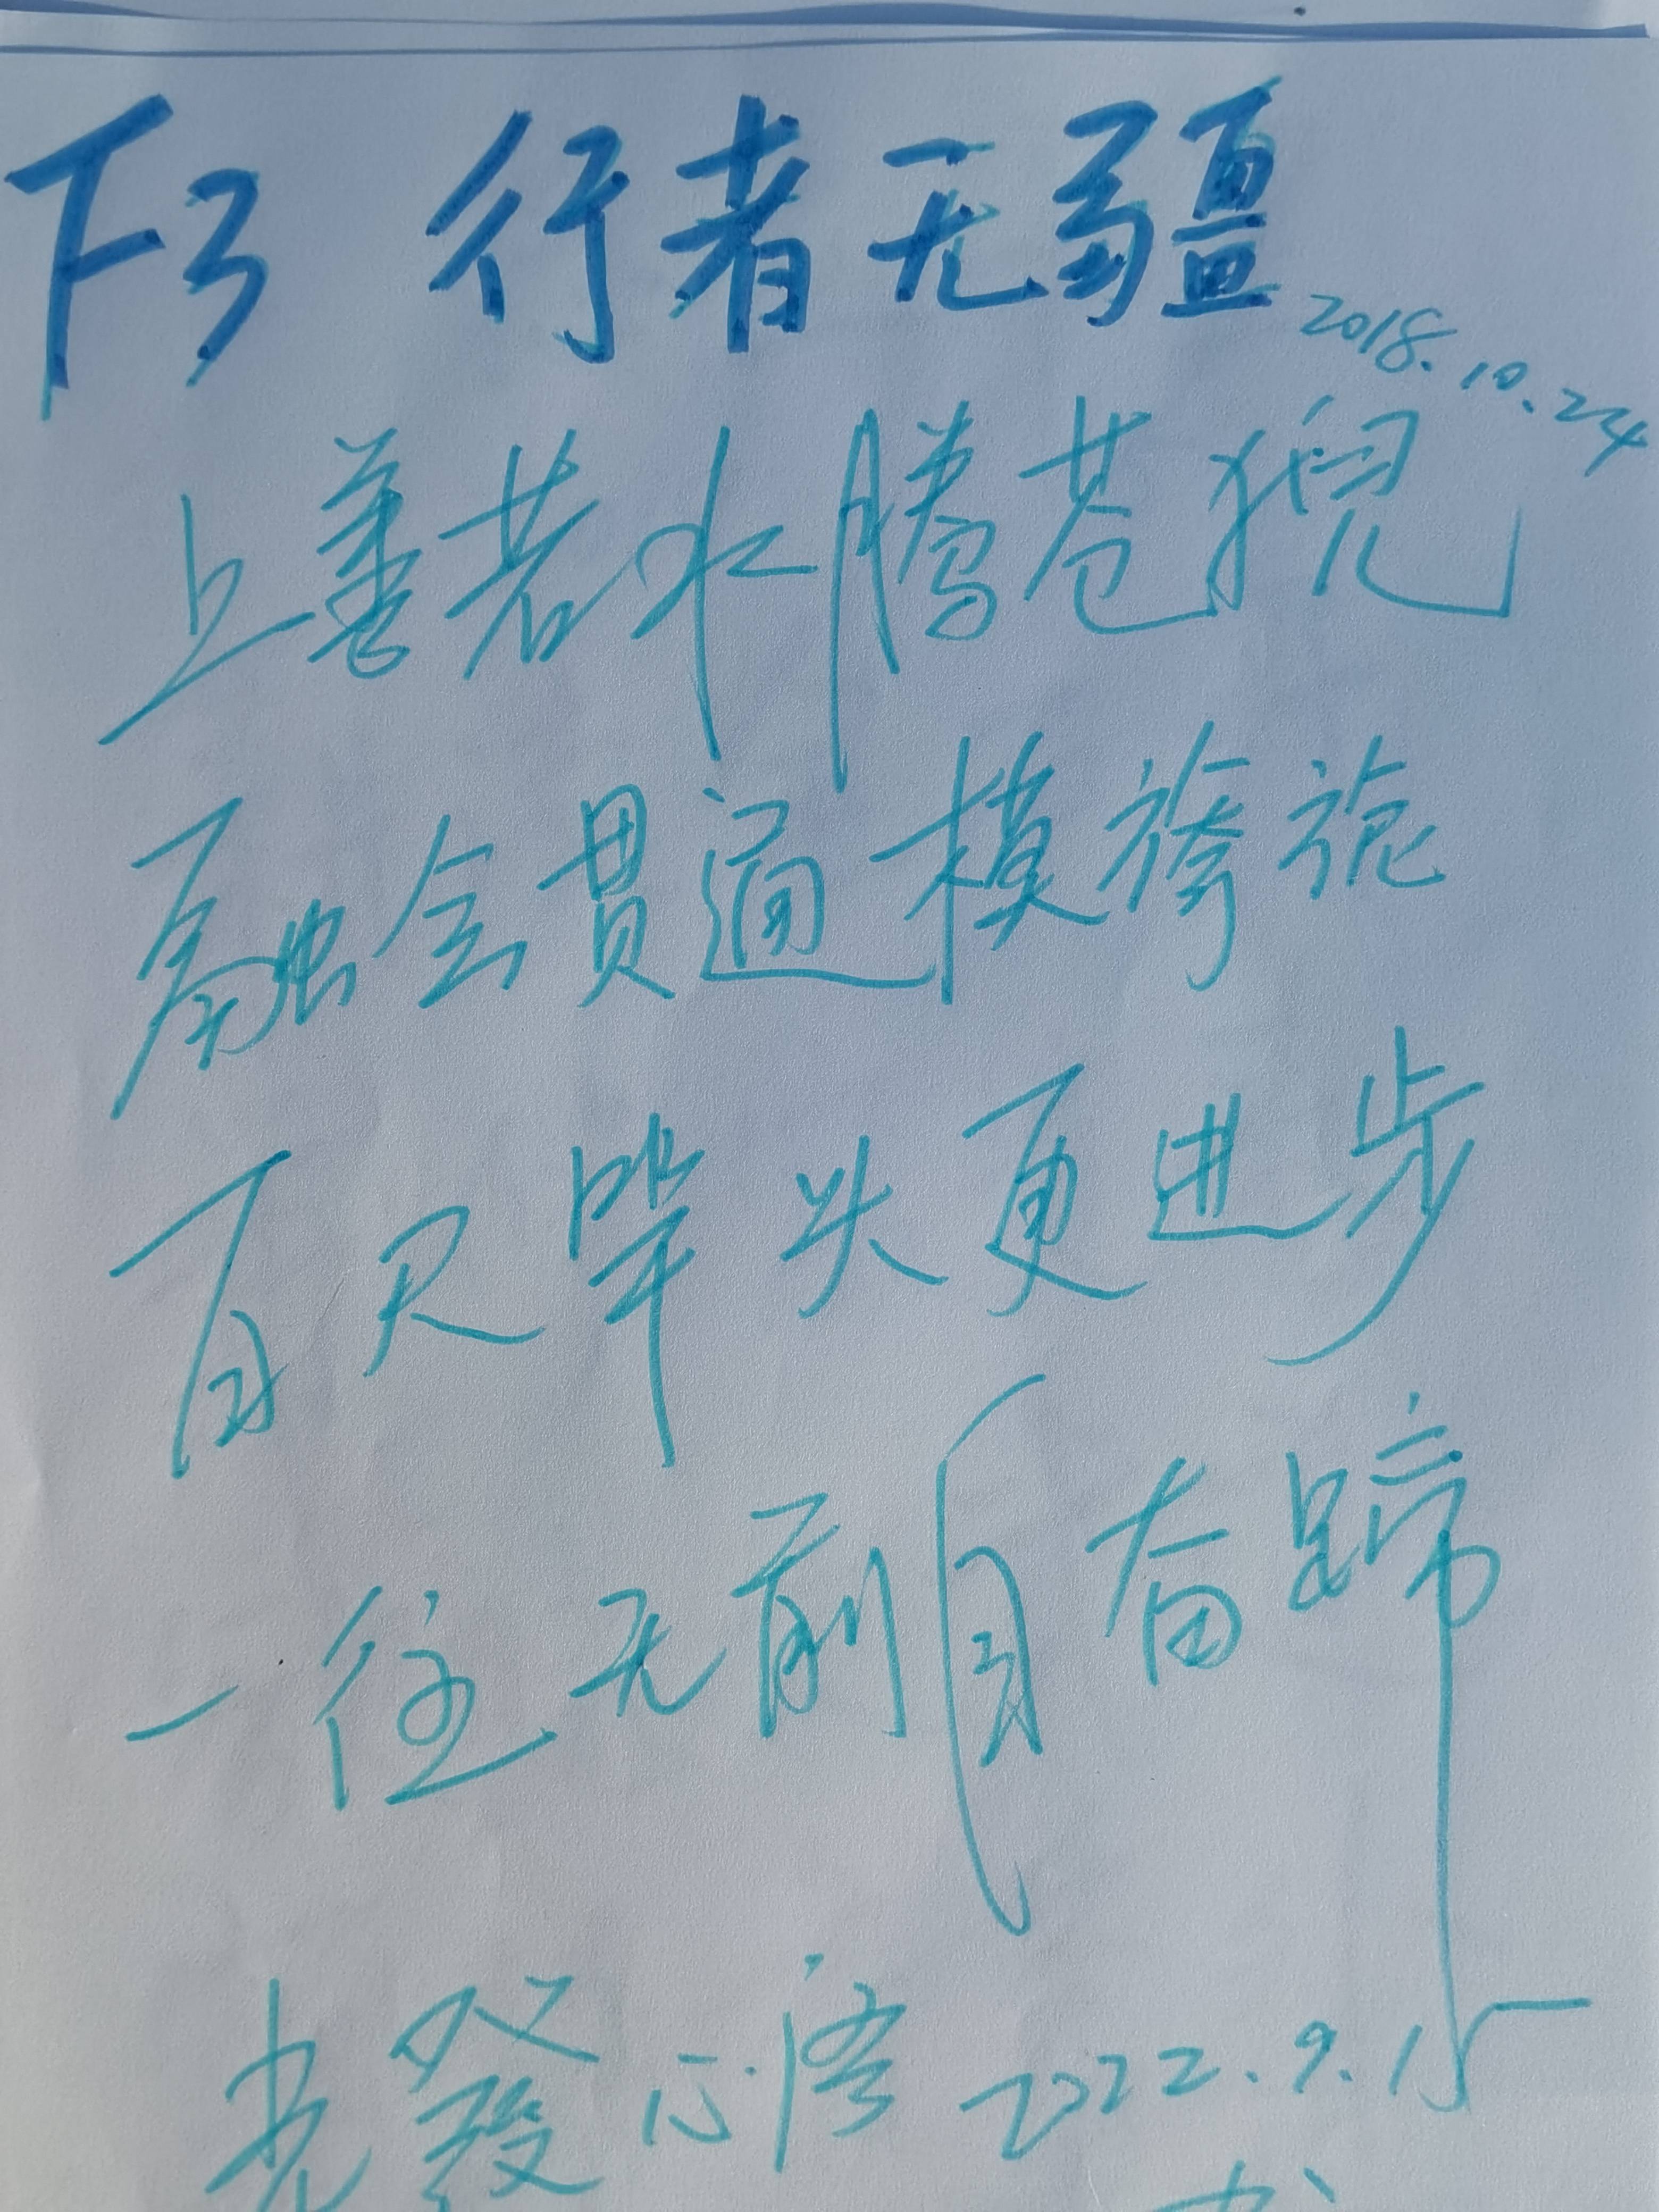 F3 行者无疆
2018.10.24
上善若水腾苍猊
融会贯通模
百尺竿头更进步
一往无前自奋蹄
光發心语 2022.9.15